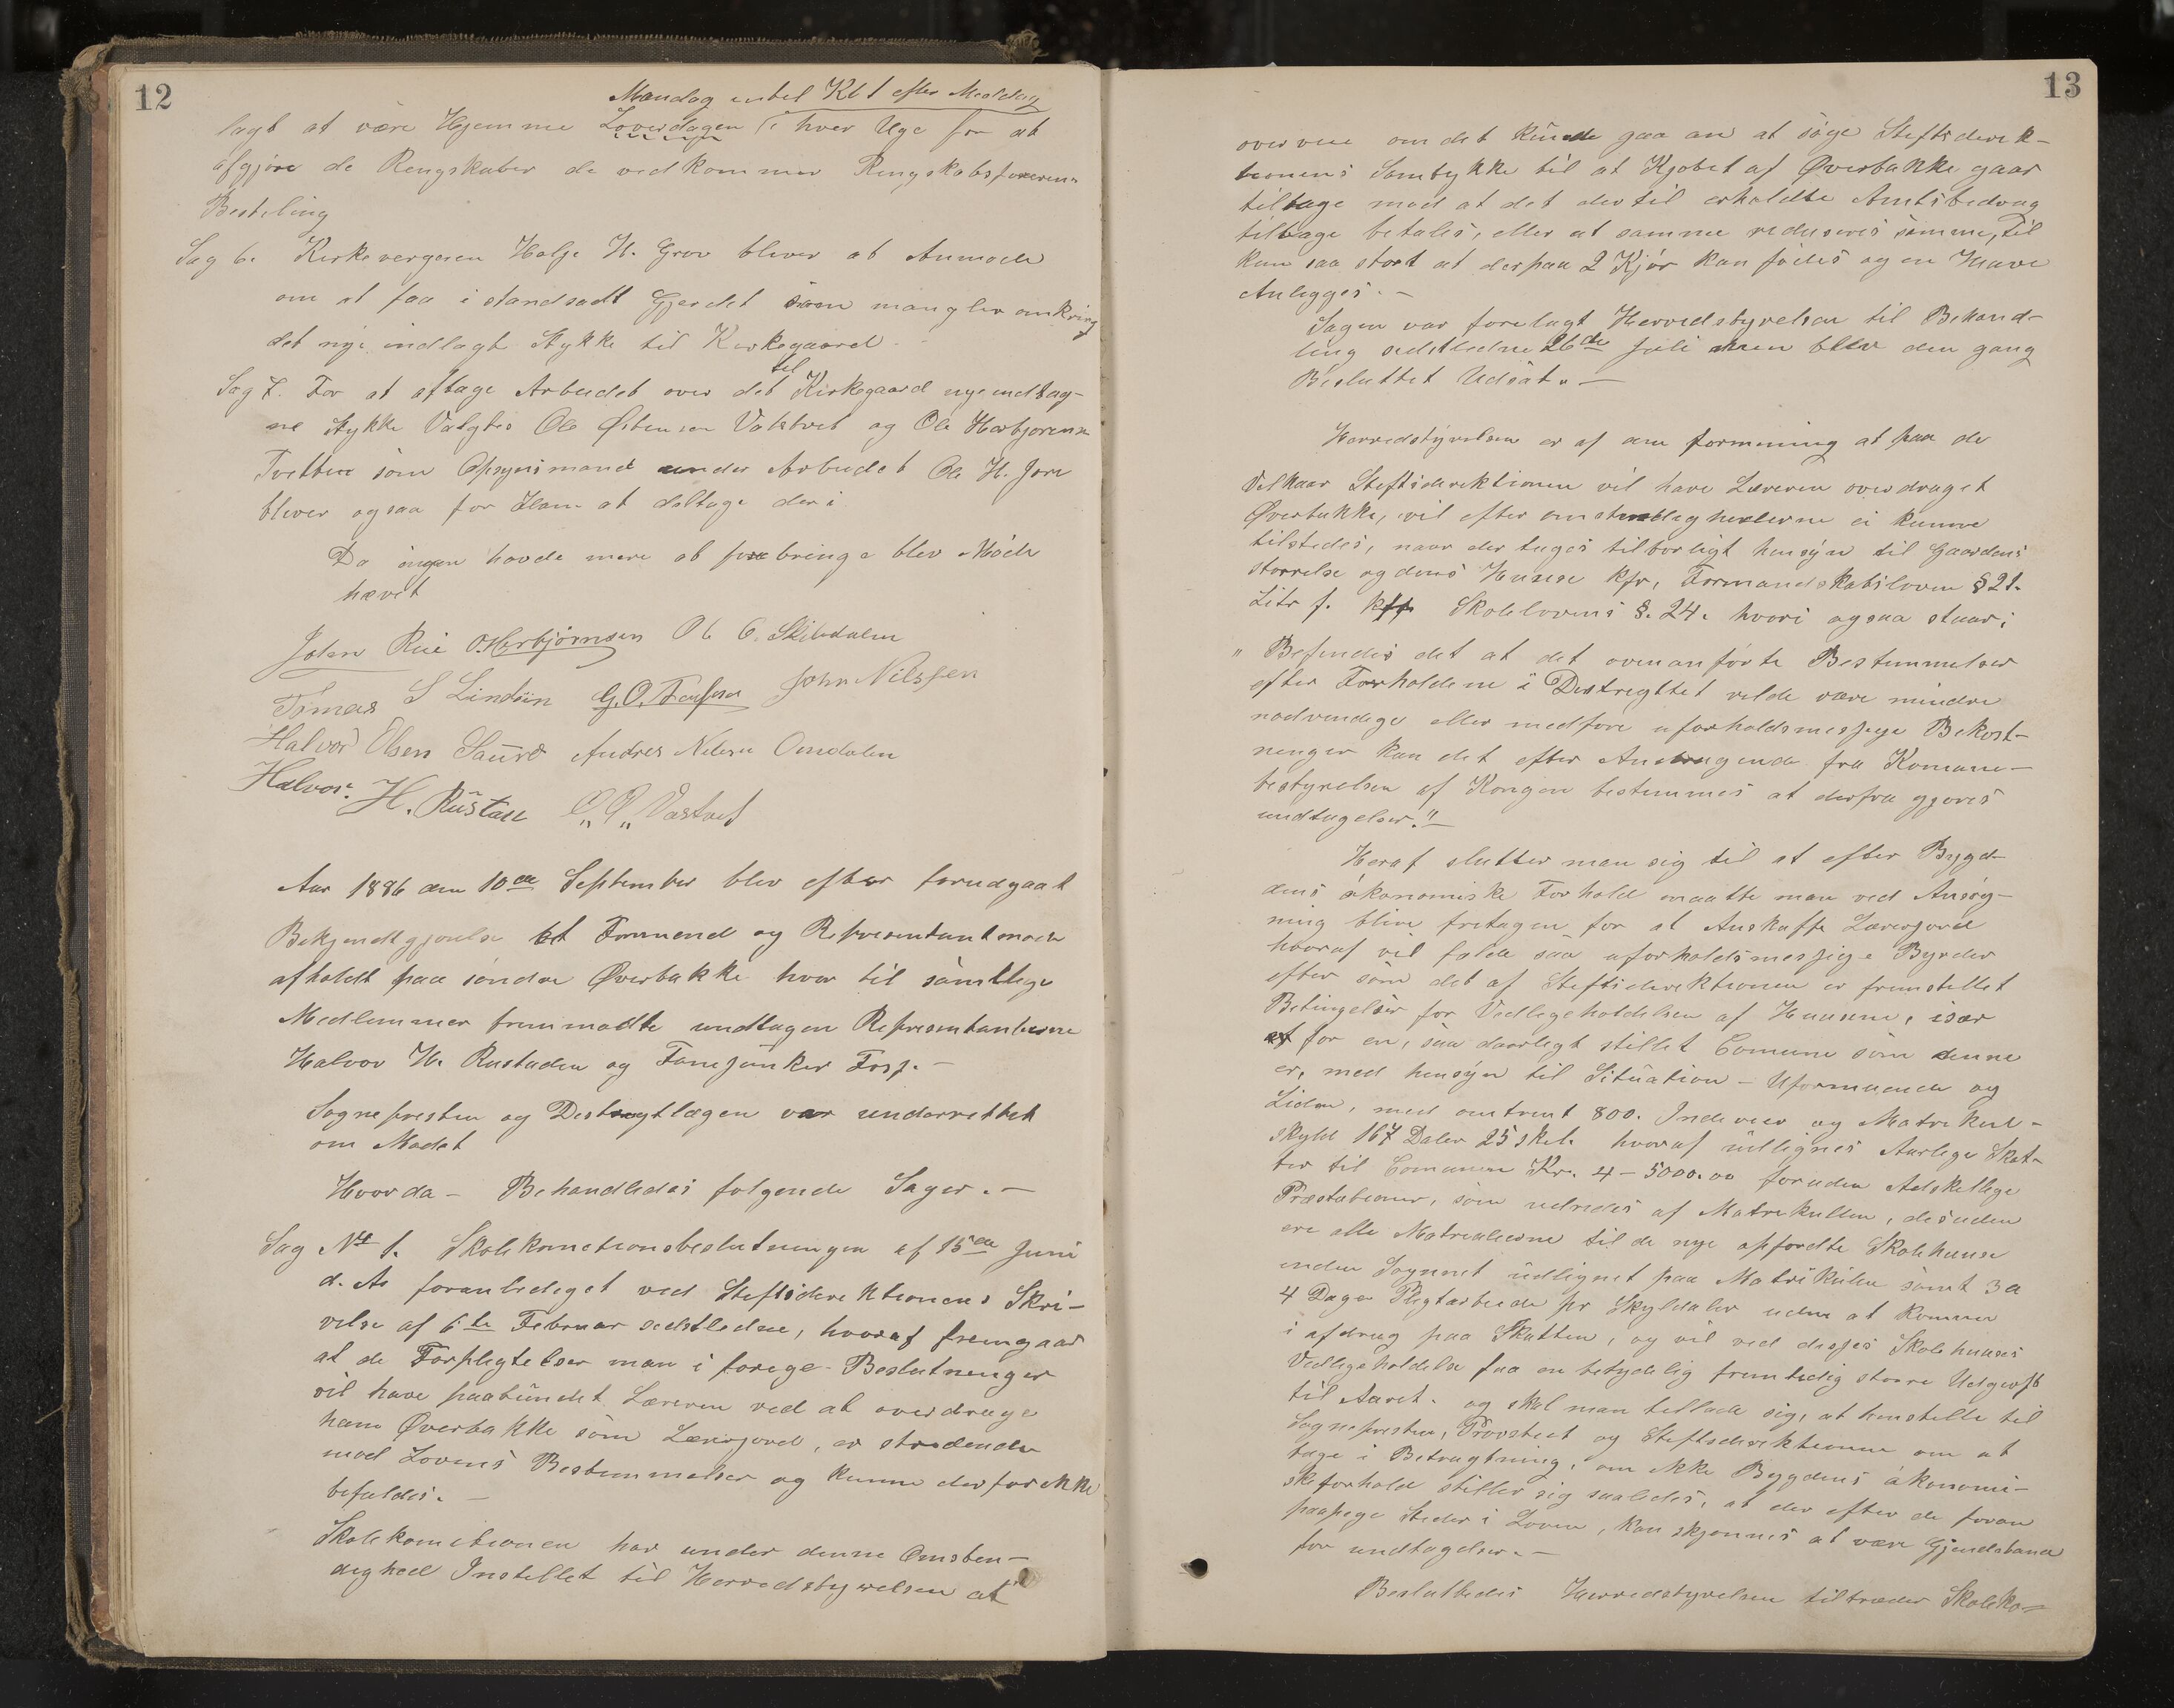 12
Mandag indtil Kl 1 efter Middag
lagt at være Hjemme Loverdagen i hver Uge for at
afgjøre de Rengskaber de vedkommer Rengskabsføreren
Besteling
Sag 6. Kirkevergeren Halje H. Grov bliver at Anmode
om at faa i standsadt Gjerdet som mangler omkring
det nye indlagt Stykke til Kirkegaard
Sag 7. For at aftage Arbeidet over det til Kirkegaard nye indtag-
ne Stykke Valgtes Ole Østensen Vatstvet og Ole Herbjørnsen
Tvetten som Opsynsmand under Arbeidet Ole H. Jore
bliver ogsaa for Ham at deltage der i
Da ingen havde mere at frebringe blev Møde
hævet
John Rue O. Herbjørnsen O. C. Skibdalen
Tomas S Lindsin G. O. John Nilssen
Halvor Olsen Saure Andres Nilsen Omdalen
Halvor H. Rustad O. O. Vastvet
Aar 1886 den 10de September blev efter forudgaat
Bekjendtgjørelse et Formend og Representantmøde
afholdt paa søndre Øverbakke hvor til samtlege
Medlemmer fremmødte undtagen Representanterne
Halvor H. Rustaden og Fanejunker Foss. —
Sognepresten og Destrigtlægen var underrettet
om Mødet
Hvorda - Behandledes følgende Sager. —
Sag No 1. Skolekometionsbeslutningen af 15de Juni
d. A. foranlediget ved Steftsdirektionens Skri-
velse af 6te Februar sedstledne, hvoraf fremgaar
at de Forpligtelser man i forege Beslutninger
vil have paabundet Læreren ved at overdrage
ham Øverbakke som Lærerjord, er stredende
mod Lovens Bestemmelser og kunne derfor ikke
befuldes. —
Skolekometionen har under denne Omsten-
deghed Instellet til Herredstyrelsen at
13
overveie om det kunde gaa an at søge Steftsderek-
tionens Samtykke til at Kjøbet af Øverbakke gaar
tilbage mod at det dertil erholdte Amtsbedrag
tilbage betales, eller at samme reduseres til
kun saa stort at derpaa 2 Kjør kan fødes og en Have
Anlegges. —
Sagen var forelagt Herredstyrelsen til Behand-
ling sedstledne 26de Juli men blev den gang
Besluttet Udsat. —
Herredstyrelsen er af den formening at paa de
Velkaar Steftsdirektionen vil have Læreren overdraget
Øverbakke, vil efter omstendighederne ei kunne
tilstedes, naar der tages tilbørligt hensyn til Gaardens
størrelse og dens Husese kfr, Formandskabsloven § 21.
Litr f. kfr Skolelovens §. 24. hvori ogsaa staar;
„ Befindes det at det ovenanførte Bestemmelser
efter Forholdene i Destrigttet vilde være mindre
nødvendige eller medføre uforholdsmessige Bekost-
ninger kan det efter Andragende fra Komune-
bestyrelsen af Kongen bestemmes at derfra gjøres
undtagelser." —
Heraf slutter man sig til at efter Bygd-
dens økonomiske Forhold maatte man ved Ansøg-
ning blive fretagen for at Anskaffe Lærerjord
hvoraf vil følde saa uforholdsmessige Byrder
efter som det af Steftsdirektionen er fremstellet
Betingelser for Vedlegeholdelsen af Husene, især
for en, saa daarligt stillet Comune som denne
er, med hensyn til Situation - Uformuende og
Liden, med omtrent 800. Indevere og Matrikul-
skyld 167 Daler 25 skel. hvoraf udlignes Aarlege Skat-
ter til Comunen Kr. 4 - 5000.00 foruden Adskellege
Præstationer, som udredes af Matrikullen, desuden
ere alle Matrealierne til de nye opførdte Skolehuuse
inden Sognnet udlignet paa Matrikulen samt 3 a
4 Dager Pligtarbeide pr Skyldaler uden at komme
i afdrag paa Skatten, og vil ved disses Skolehuuses
Vedlegeholdelse faa en betydelig fremtidig større Udgivft
til Aaret. og skal man tellade sig, at henstelle til
Sognepresten, Provstiet og Steftsderektionen om at
tage i Betragtning, om ikke Bygdens økonomi-
skeforhold stiller sig saaledes, at der efter de foran
paapege Steder i Loven, kan skjønnes at være Gjendstand
for undtagelser. —
Besluttedes Herredstyrelsen tiltræder Skoleko=